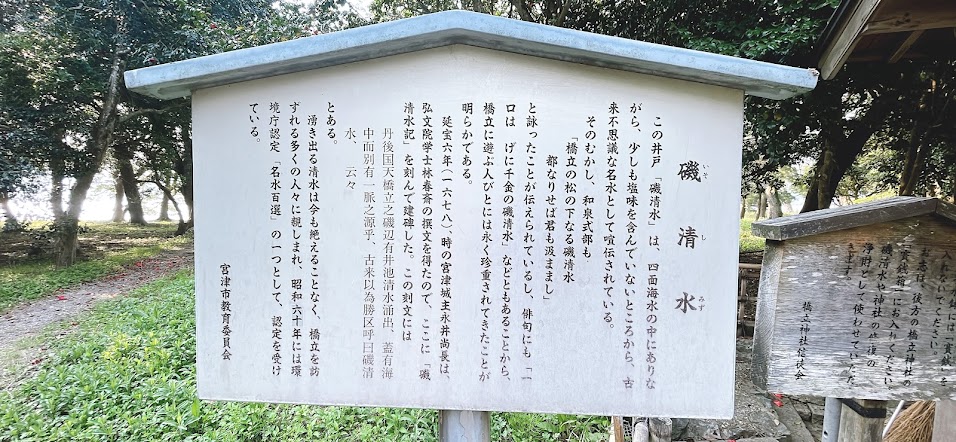 磯清水
いそ し みず
この井戸「磯清水」は、四面海水の中にありな
がら、少しも塩味を含んでいないところから、古
来不思議な名水として喧伝されている。
そのむかし、和泉式部も
「橋立の松の下なる磯清水
都なりせば君も汲ままし」
と詠ったことが伝えられているし、俳句にも「一
口は げに千金の磯清水」などともあることから、
橋立に遊ぶ人びとには永く珍重されてきたことが
明らかである。
延宝六年（一六七八）、時の宮津城主永井尚長は、
弘文院学士林春斎の撰文を得たので、ここに「磯
清水記」を刻んで建碑した。この刻文には
丹後国天橋立之磯辺有井池清水涌出、蓋有海
中而別有一脈之源乎、古来以為勝区呼曰磯清
水、云々
とある。
湧き出る清水は今も絶えることなく、橋立を訪
ずれる多くの人々に親しまれ、昭和六十年には環
境庁認定「名水百選」の一つとして、認定を受け
ている。
宮津市教育委員会
入れないでください。
お賽銭は、後方の橋立神社の
「賽銭箱」にお入れてください
磯清水や神社の整備の
浄財として使わせていただ
きます。
橋立神社信枝会